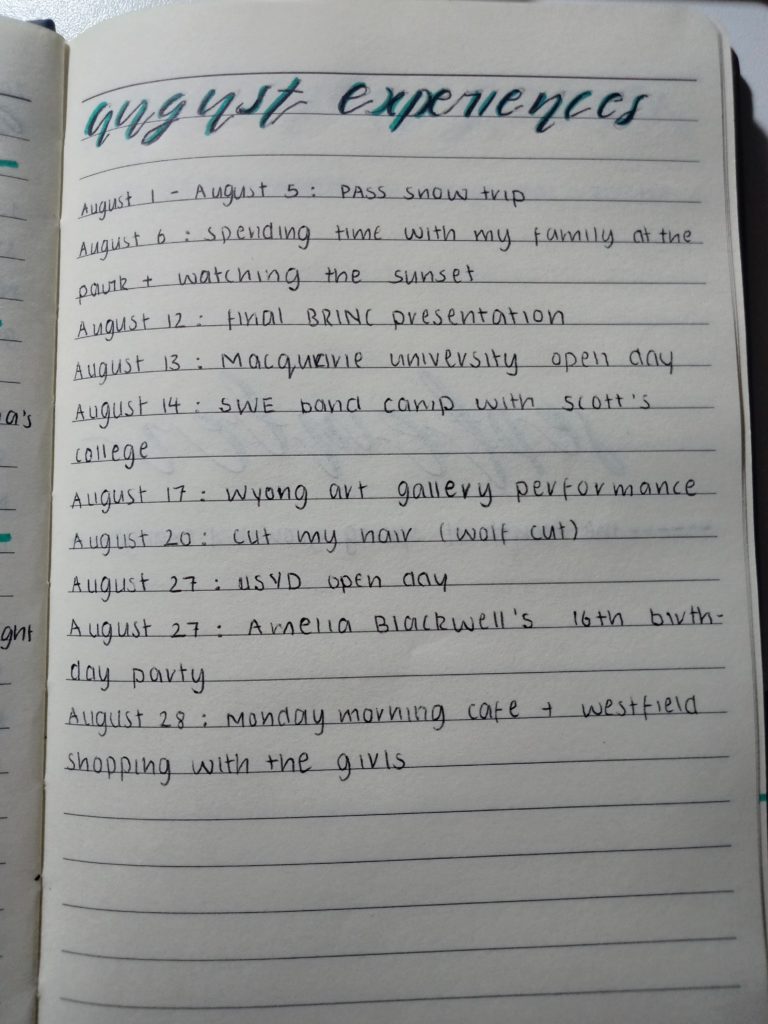 august experiences
August 1 - August 5 : PASS snow trip
August 6 : spending time with my family at the
park + watching the sunset
August 12 : final BRINC presentation
August 13 : Macquarie university open day
August 14 : SWE band camp with scott's
college
August 17 : Wyong art gallery performance
August 20 : cut my hair (wolf cut)
August 27 : USYD open day
August 27 : Amelia Blackwell's 16th birth-
day party
August 28 : Monday morning cafe + westfield
shopping with the girls
a's
ght